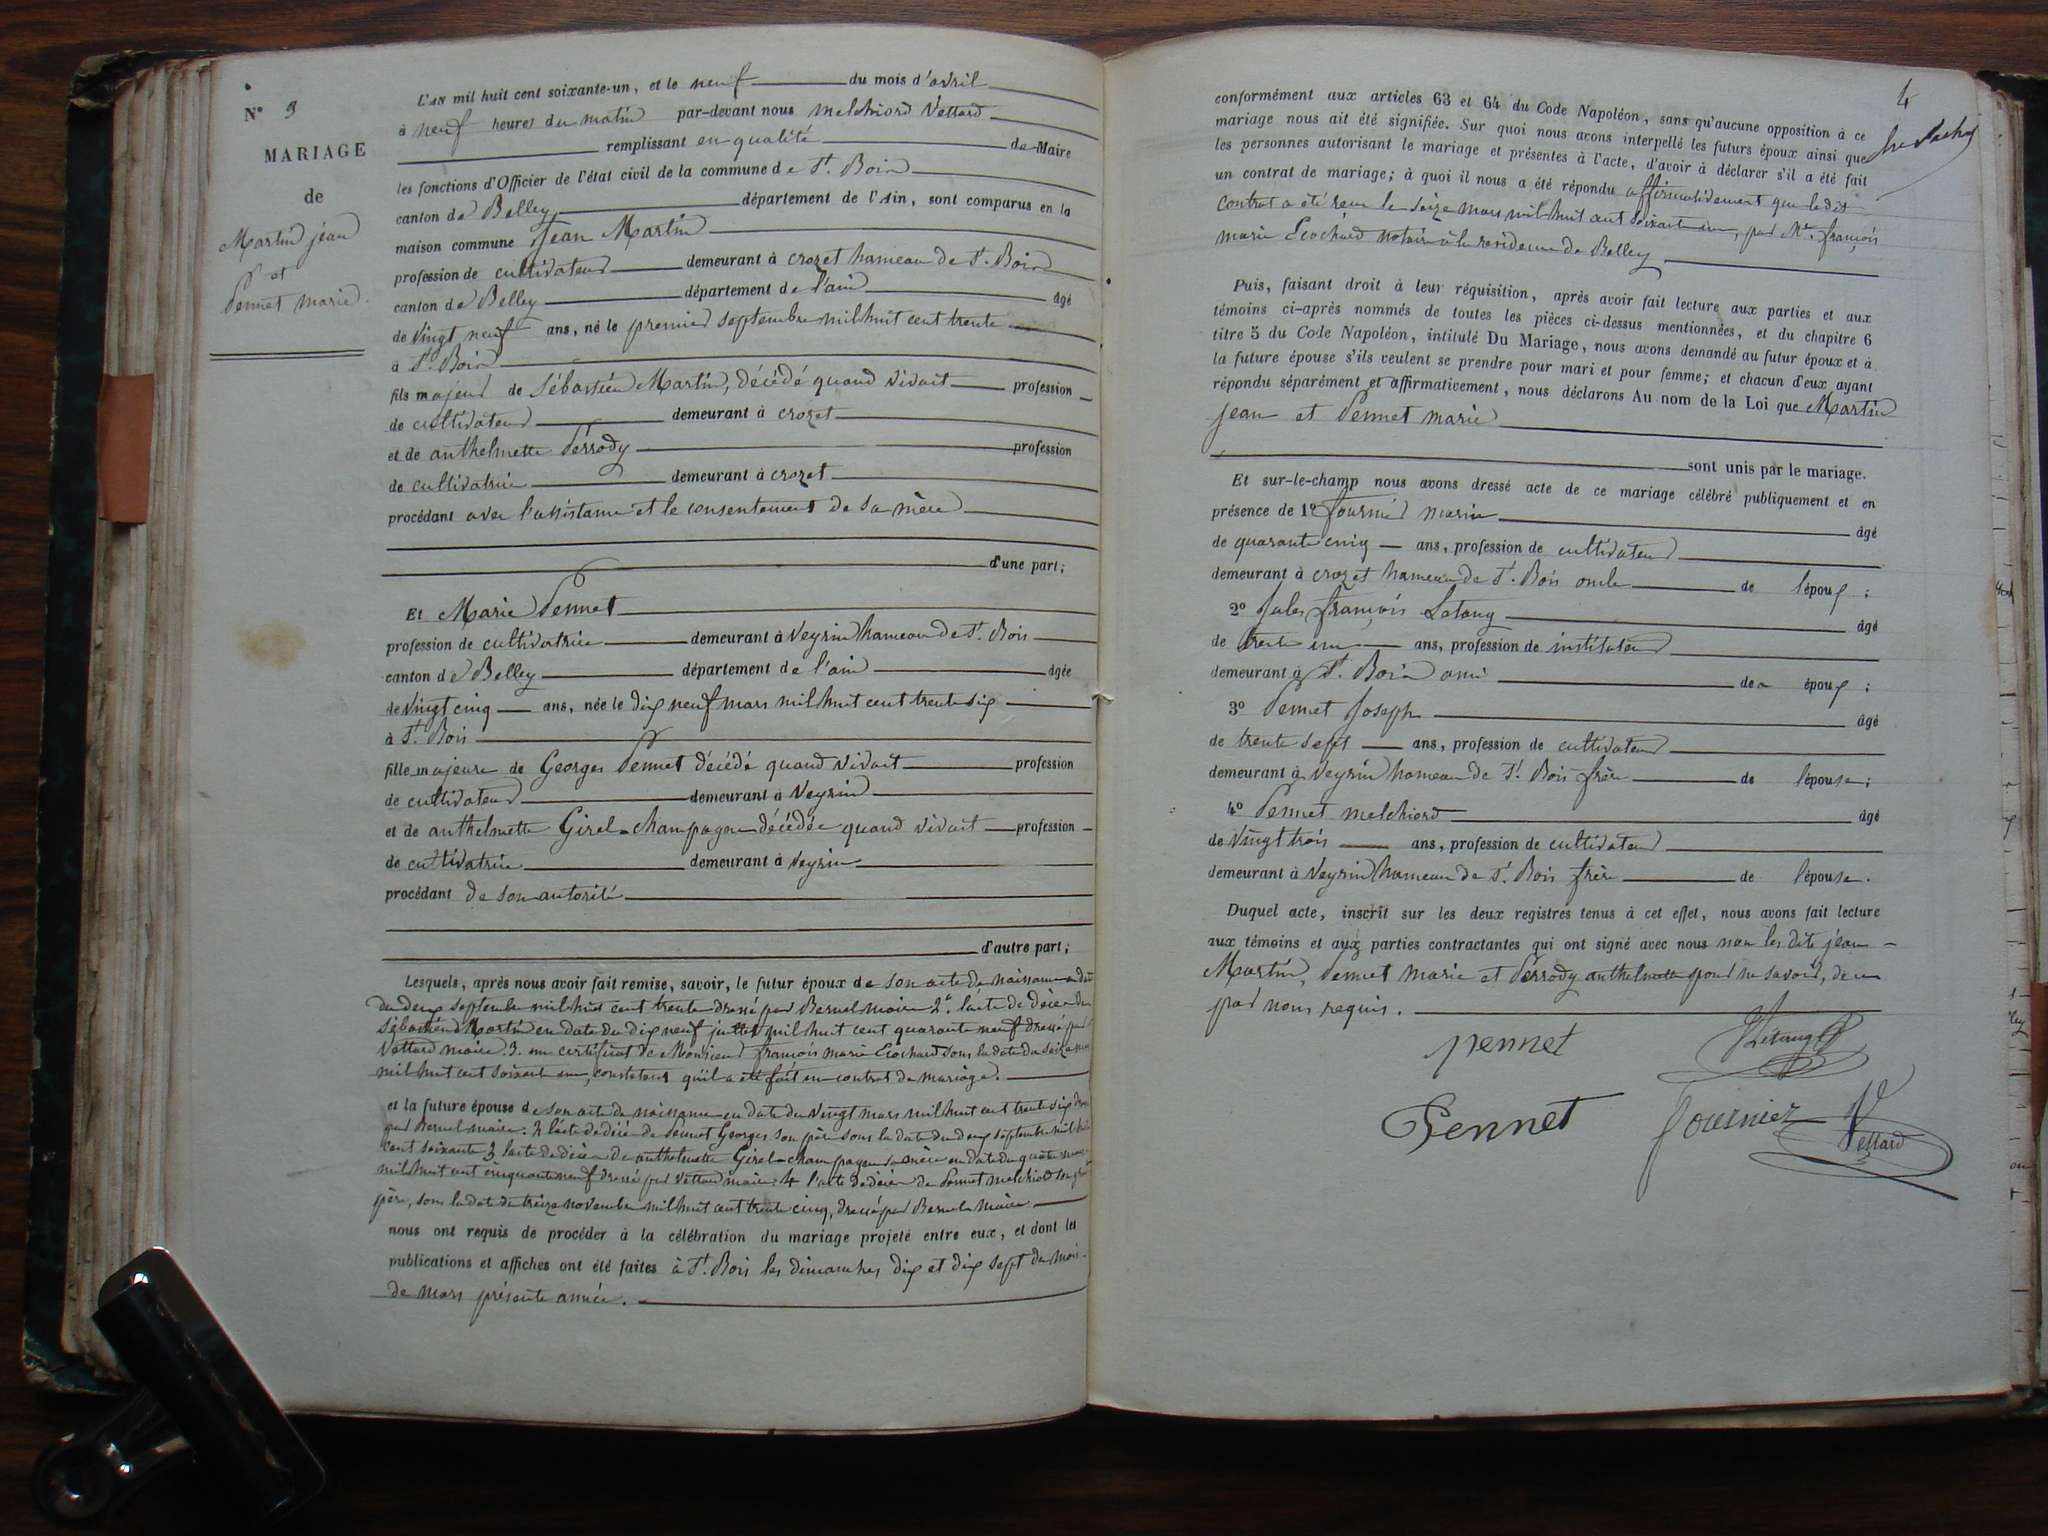 N° 3
MARIAGE
de
Martin jean
et
Pennet marie.
L'AN mil huit cent soixante-un, et le neuf du mois d'avril
à neuf heures du matin par-devant nous melchiord Vettard
remplissant en qualité de Maire
les fonctions d'Officier de l'état civil de la commune de St. Bois
canton de Belley département de l'Ain, sont comparus en la
maison commune Jean Martin
profession de cultivateur demeurant à crozet hameau de St. Bois
canton de Belley département de l'ain âgé
de vingt neuf ans, né le premier septembre mil huit cent trente
à St. Bois
fils majeur de Sébastien Martin, décédé quand vivait profession
de cultivateur demeurant à crozet
et de anthelmette Perrody profession
de cultivatrice demeurant à crozet
procédant avec l'assistance et le consentement de sa mère
d'une part;
Et Marie Pennet
profession de cultivatrice demeurant à Veyrin hameau de St. Bois
canton de Belley département de l'ain âgée
de vingt cinq ans, née le dix neuf mars mil huit cent trente six
à St. Bois
fille majeure de Georges Pennet décédé quand vivait profession
de cultivateur demeurant à Veyrin
et de anthelmette Girel-champagne décédée quand vivait profession
de cultivatrice demeurant à Veyrin
procédant de son autorité
d'autre part;
Lesquels, après nous avoir fait remise, savoir, le futur époux de son acte de naissance en date
du deux septembre mil huit cent trente dressé par Bernel maire 2° l'acte de décès de
Sébastien Martin en date du dix neuf juillet mil huit cent quarante neuf dressé par
Vettard maire. 3. un certificat de Monsieur françois marie Ecochard sous la date du seize mars
mil huit cent soixante un, constatant qu'il a été fait un contrat de mariage.
et la future épouse de son acte de naissance en date du vingt mars mil huit cent trente six dressé
par Bernel maire. 2 l'acte de décès de Pennet Georges son père sous la date du deux septembre mil huit
cent soixante 3 l'acte de décès de anthelmette Girel-champagne sa mère en date du quatre
mil huit cent cinquante neuf dressé par Vettard maire. 4 l'acte de décès de Pennet melchiord son grand
père, sous la date du treize novembre mil huit cent trente cinq, dressé par Bernel maire
nous ont requis de procéder à la célébration du mariage projeté entre eux, et dont les
publications et affiches ont été faites à St. Bois les dimanches dix et dix sept du mois
de mars présente année.
4
conformément aux articles 63 et 64 du Code Napoléon, sans qu'aucune opposition à ce
mariage nous ait été signifiée. Sur quoi nous avons interpellé les futurs époux ainsi que
les personnes autorisant le mariage et présentes à l'acte, d'avoir à déclarer s'il a été fait
un contrat de mariage; à quoi il nous a été répondu affirmativement que le dit
contrat a été reçu le seize mars mil huit cent soixante un, par Me. françois
marie Ecochard notaire à la résidence de Belley
Puis, faisant droit à leur réquisition, après avoir fait lecture aux parties et aux
témoins ci-après nommés de toutes les pièces ci-dessus mentionnées, et du chapitre 6
titre 5 du Code Napoléon, intitulé Du Mariage, nous avons demandé au futur époux et à
la future épouse s'ils veulent se prendre pour mari et pour femme; et chacun d'eux ayant
répondu séparément et affirmativement, nous déclarons Au nom de la Loi que Martin
jean et Pennet marie
sont unis par le mariage.
Et sur-le-champ nous avons dressé acte de ce mariage célébré publiquement et en
présence de 1° fournié marin âgé
de quarante cinq ans, profession de cultivateur
demeurant à crozet hameau de St. Bois oncle de l'époux;
2° Jules françois Letang âgé
de trente un ans, profession de instituteur
demeurant à St. Bois ami des époux;
3° Pennet Joseph âgé
de trente sept ans, profession de cultivateur
demeurant à Veyrin hameau de St. Bois frère de l'épouse;
4° Pennet melchiord âgé
de vingt trois ans, profession de cultivateur
demeurant à Veyrin hameau de St. Bois frère de l'épouse.
Duquel acte, inscrit sur les deux registres tenus à cet effet, nous avons fait lecture
aux témoins et aux parties contractantes qui ont signé avec nous non les dits jean
Martin, Pennet marie et Perrody anthelmette pour ne savoir, de ce
par nous requis.
pennet
JLetang
Pennet
fournier
Vettard